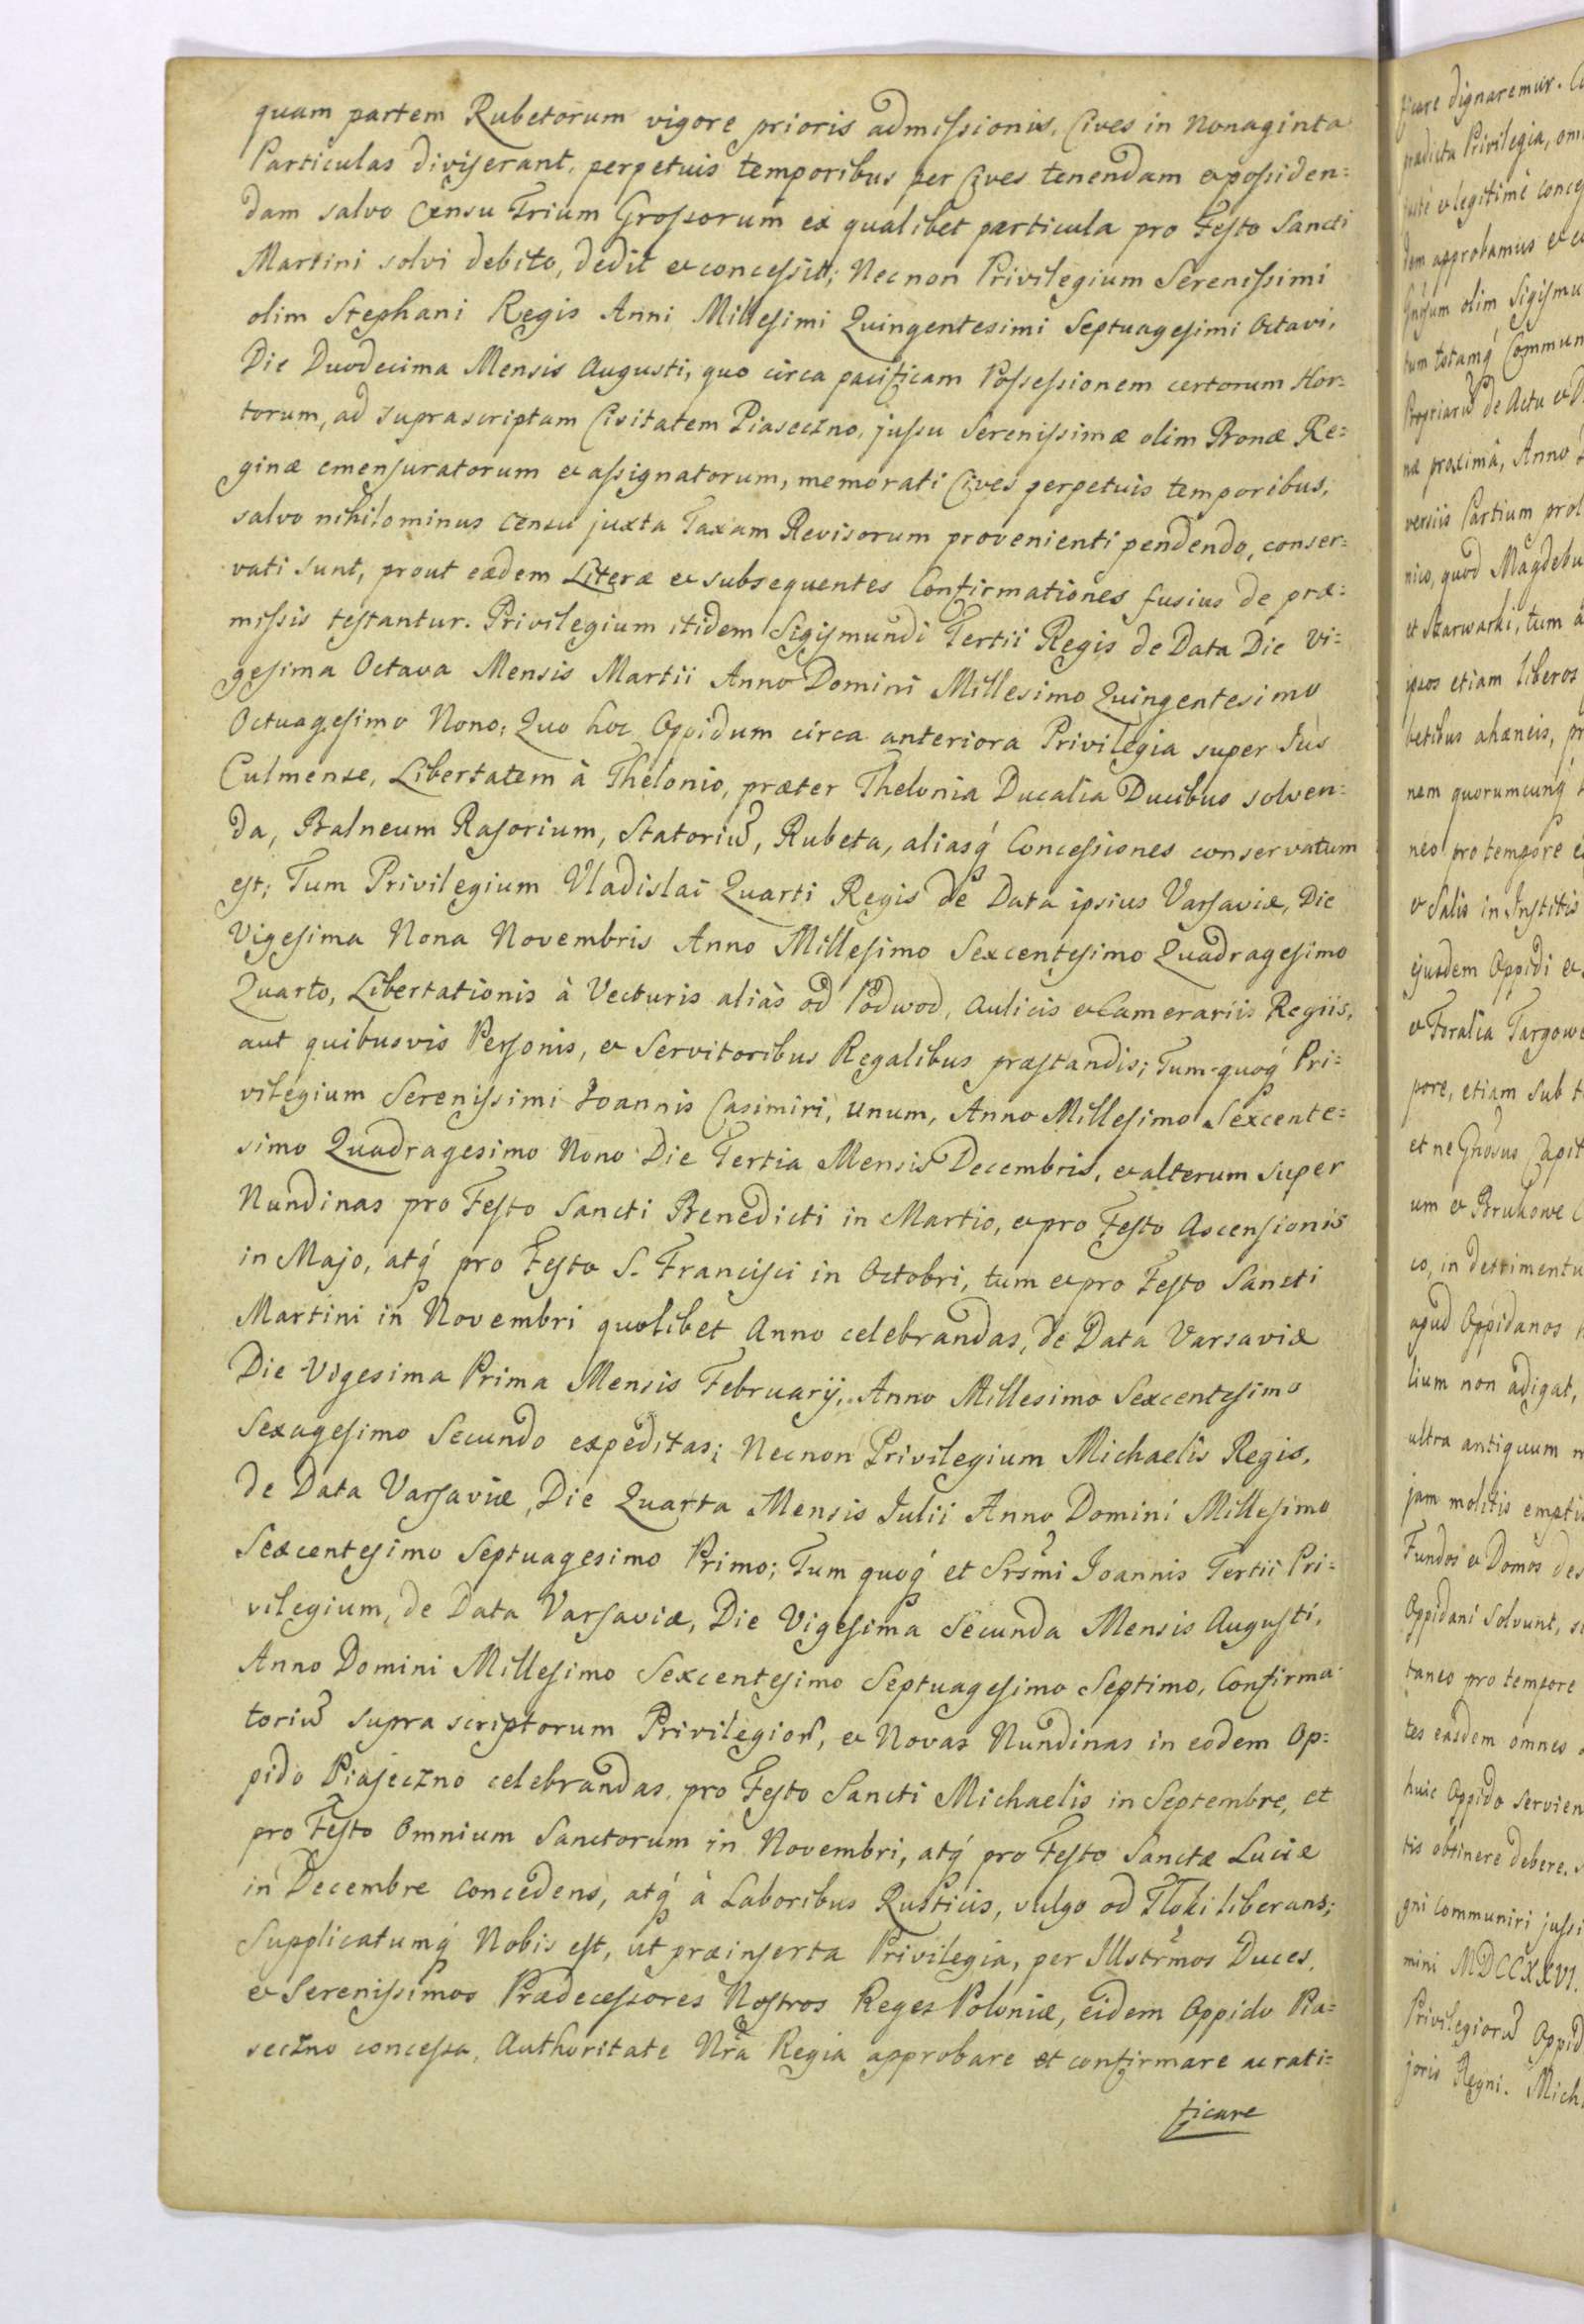 quam partem Rubetorum vigore prioris admissionis, Cives in Nonaginta
Particulas diviserant, perpetuis temporibus per Cives tenendam et possiden=
dam salvo Censu Trium Grossorum ex qualibet particula pro Festo Sancti
Martini solvi debito, dedit et concessit; Necnon Privilegium Serenissimi
olim Stephani Regis Anni Millesimi Quingentesimi Septuagesimi Octavi,
Die Duodecima Mensis Augusti, quo circa pacificam Possessionem certorum Hor=
torum, ad suprascriptam Civitatem Piaseczno, jussu Serenissimæ olim Bonæ Re=
ginæ emensuratorum et assignatorum, memorati Cives perpetuis temporibus,
salvo nihilominus censu juxta Taxam Revisorum provenienti pendendo, conser=
vati sunt, prout eædem Literæ et subsequentes Confirmationes fusius de præ=
missis testantur. Privilegium itidem Sigismundi Tertii Regis de Data Die Vi=
gesima Octava Mensis Martii Anno Domini Millesimo Quingentesimo
Octuagesimo Nono; Quo hoc Oppidum circa anteriora Privilegia super Jus
Culmense, Libertatem à Thelonio, præter Thelonia Ducalia Ducibus solven=
da, Balneum Rasorium, Statoriũ, Rubeta, aliasq́ Concessiones conservatum
est; Tum Privilegium Vladislai Quarti Regis de Data ipsius Varsaviæ, Die
Vigesima Nona Novembris Anno Millesimo Sexcentesimo Quadragesimo
Quarto, Libertationis à Vecturis aliàs od Podwod, Aulicis et Camerariis Regiis,
aut quibusvis Personis, et Servitoribus Regalibus præstandis; Tum quoq́ Pri=
vilegium Serenissimi Joannis Casimiri, unum, Anno Millesimo Sexcente=
simo Quadragesimo Nono Die Tertia Mensis Decembris, et alterum super
Nundinas pro Festo Sancti Benedicti in Martio, et pro Festo Ascensionis
in Majo, atq́ pro Festo S. Francisci in Octobri, tum et pro Festo Sancti
Martini in Novembri quolibet Anno celebrandas, de Data Varsaviæ
Die Vigesima Prima Mensis Februarij, Anno Millesimo Sexcentesimo
Sexagesimo Secundo expeditas; Necnon Privilegium Michaelis Regis,
de Data Varsaviæ, Die Quarta Mensis Julii Anno Domini Millesimo
Sexcentesimo Septuagesimo Primo; Tum quoq́ et Srsmi Joannis Tertii Pri=
vilegium, de Data Varsaviæ, Die Vigesima Secunda Mensis Augusti,
Anno Domini Millesimo Sexcentesimo Septuagesimo Septimo, Confirma=
toriũ supra scriptorum Privilegiorũ, et Novas Nundinas in eodem Op=
pido Piaseczno celebrandas, pro Festo Sancti Michaelis in Septembre, et
pro Festo Omnium Sanctorum in Novembri, atq́ pro Festo Sanctæ Luciæ
in Decembre concedens, atq́ à Laboribus Rusticis, vulgo od Tłoki liberans;
Supplicatumq́ Nobis est, ut præinserta Privilegia, per Illstrmos Duces,
et Serenissimos Prædecessores Nostros Reges Poloniæ, eidem Oppido Pia=
seczno concessa, Authoritate Nrã Regia approbare et confirmare ac rati=
ficare
ficare dignaremur.
prædicta Privilegia,
justè et legitimè
dem approbamus et
olim Sigismu
tum totamq́ Commun
Propriarũ de Actu et
na proxima, Anno
versiis Partium
nico, quod Magdebu
et Starwarki, tum à
ipsos etiam liberos
betibus ahæneis,
nem quorumcunq́
neo pro tempore
et Salis in Institis
ejusdem Oppidi et
et Foralia Targowe
pore, etiam sub
et ne Gnosus Capit
um et Brukowe
co, in detrimentu
apud Oppidanos
lium non adigat,
ultra antiquum
jam molitis
Fundos et Domos
Oppidani solvunt,
taneo pro tempore
tes easdem omnes
huic Oppido servien
tis obtinere debere.
gni communiri jussi
mini MDCCXXVI.
Privilegiorũ Oppid
joris Regni. Mich